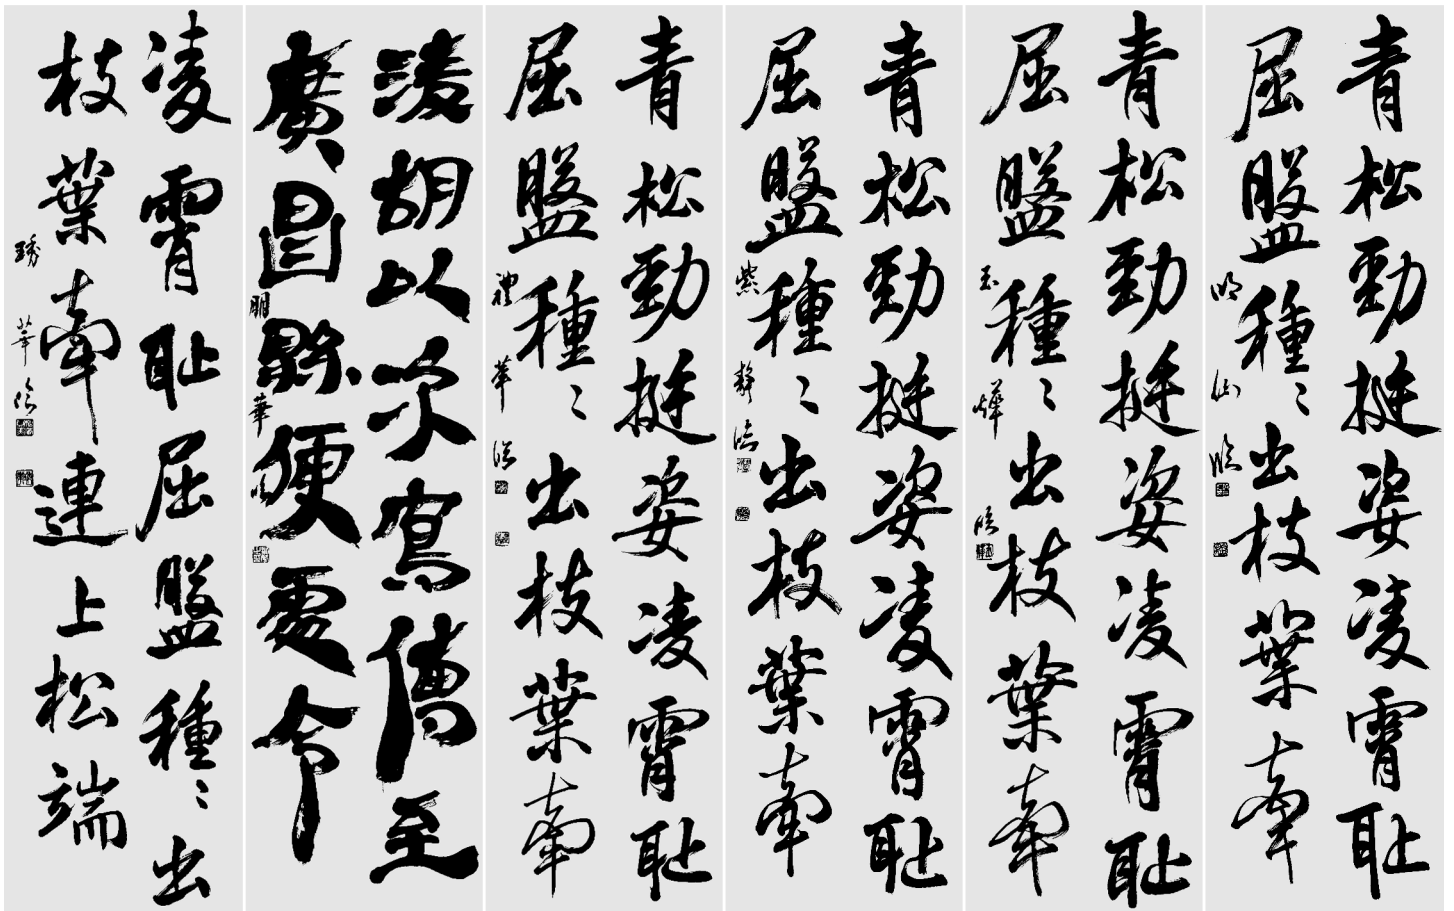 青松勁挺姿凌霄恥
屈盤種〻出枝葉牽
明山臨
青松勁挺姿凌霄恥
屈盤種〻出枝葉牽
玉燁臨
青松勁挺姿凌霄恥
屈盤種〻出枝葉牽
紫靜臨
青松勁挺姿凌霄恥
屈盤種〻出枝葉牽
禮華臨
淩胡以次寫傳至
廣昌縣便處令
明華
凌霄恥屈盤種〻出
枝葉牽連上松端
琇華臨